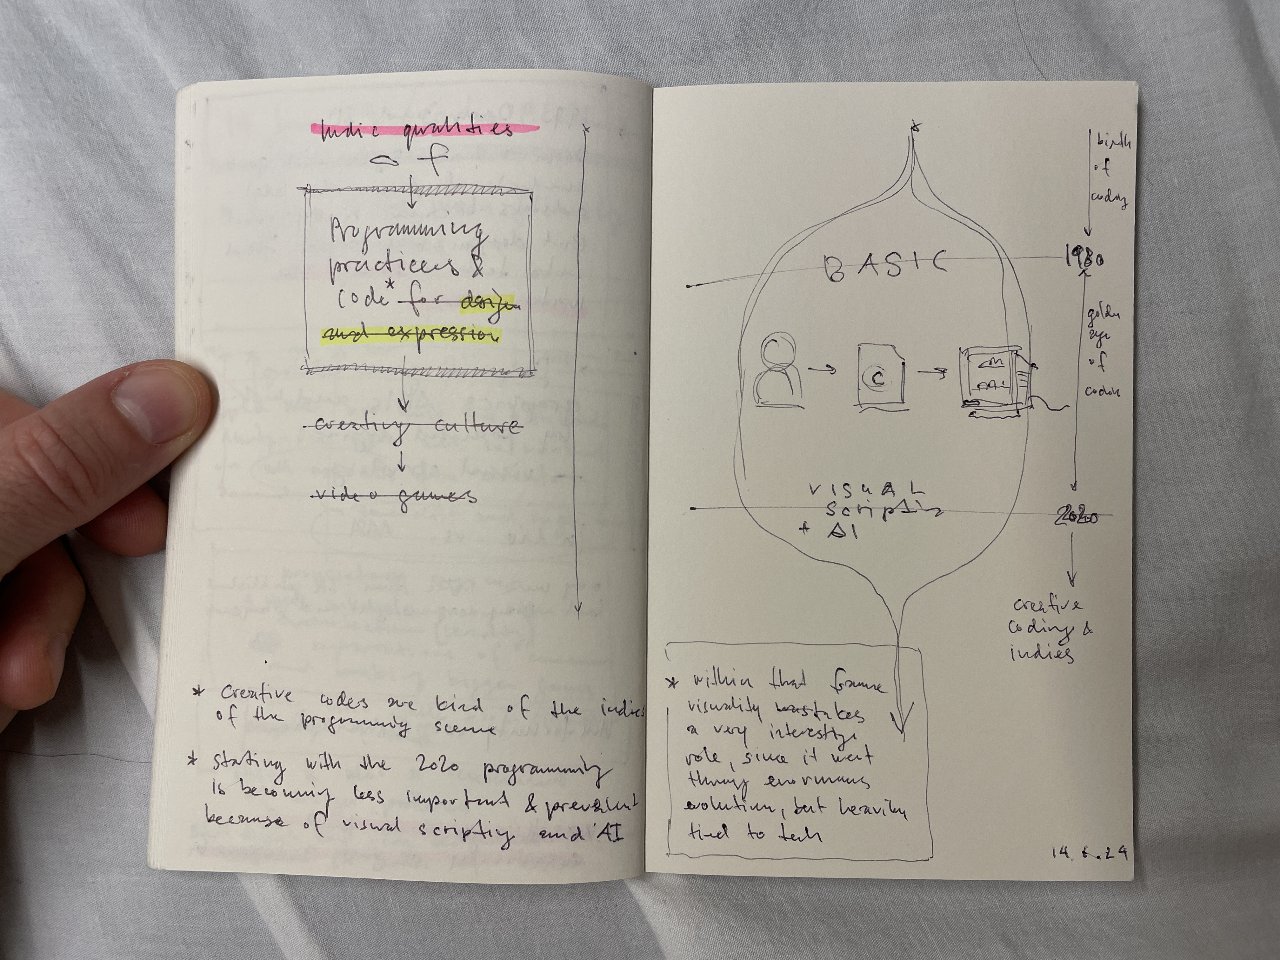 ludic qualities
of
Programming
practices &
code* for design
and expression
creating culture
video games
* Creative coders are kind of the indies
of the programming scene
* starting with the 2020 programming
is becoming less important & prevalent
because of visual scripting and AI
BASIC
C
VISUAL
scripting
+ AI
* within that frame
visuality takes
a very interesting
role, since it went
throug enormous
evolution, but heavily
tied to tech
birth
of
coding
1980
golden
age
of
coding
2020
creative
coding &
indies
14.6.24